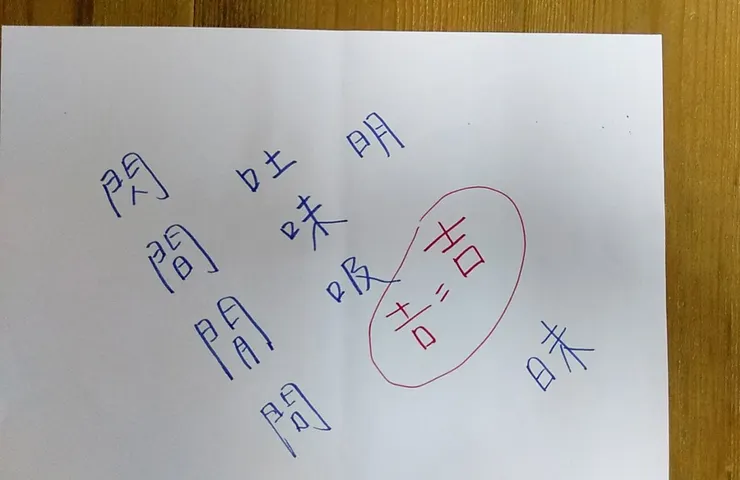 閃
間
閒
問
吐
味
吸
明
𠮷=吉
昧